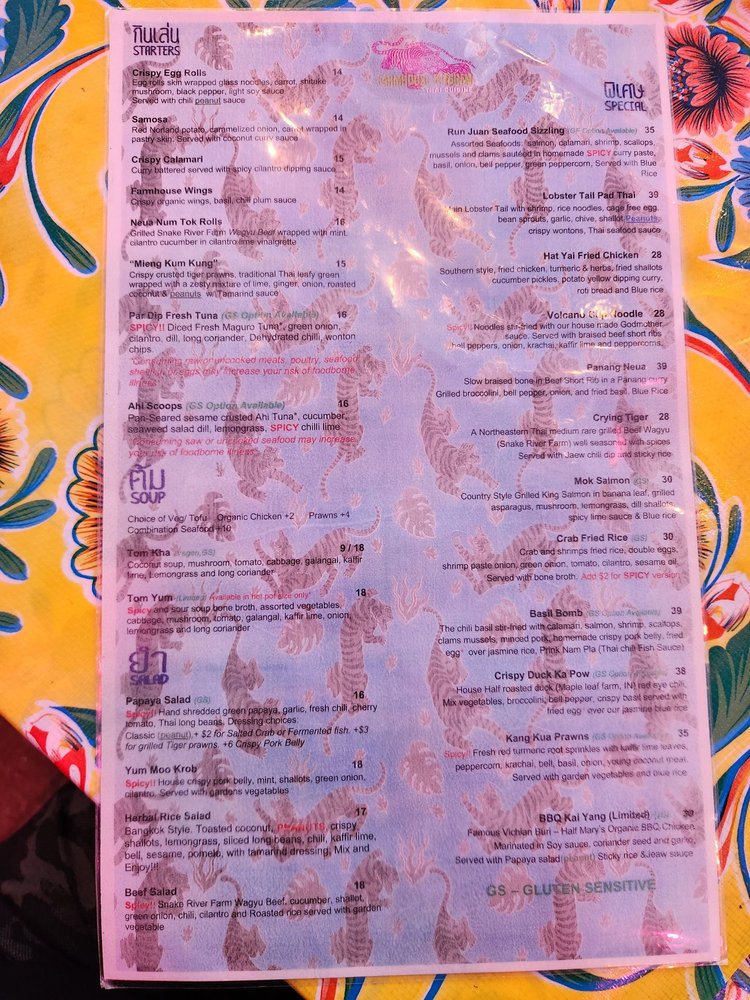 กินเล่น
STARTERS
Crispy Egg Rolls 14
Egg rolls skin wrapped glass noodles, carrot, shitake
mushroom, black pepper, light soy sauce
Served with chili peanut sauce
Samosa 14
Red Norland potato, caramelized onion, carrot wrapped in
pastry skin. Served with coconut curry sauce
Crispy Calamari 15
Curry battered served with spicy cilantro dipping sauce
Farmhouse Wings 14
Crispy organic wings, basil, chili plum sauce
Neua Num Tok Rolls 16
Grilled Snake River Farm Wagyu Beef wrapped with mint,
cilantro cucumber in cilantro lime vinaigrette
"Mieng Kum Kung" 15
Crispy crusted tiger prawns, traditional Thai leafy green
wrapped with a zesty mixture of lime, ginger, onion, roasted
coconut & peanuts w/Tamarind sauce
Par Dip Fresh Tuna (GS Option Available) 16
SPICY!! Diced Fresh Maguro Tuna*, green onion,
cilantro, dill, long coriander, Dehydrated chilli, wonton
chips.
*Consuming raw or uncooked meats, poultry, seafood
shellfish or eggs may increase your risk of foodborne
illness*
Ahi Scoops (GS Option Available) 16
Pan-Seared sesame crusted Ahi Tuna*, cucumber,
seaweed salad dill, lemongrass, SPICY chilli lime
*Consuming raw or uncooked seafood may increase
your risk of foodborne illness
SOUP
Choice of Veg/ Tofu Organic Chicken +2 Prawns +4
Combination Seafood +10
Tom Kha (Vegan, GS) 9 / 18
Coconut soup, mushroom, tomato, cabbage, galangal, kaffir
lime, Lemongrass and long coriander
Tom Yum (Limited) Available in hot pot size only* 18
Spicy and sour soup bone broth, assorted vegetables,
cabbage, mushroom, tomato, galangal, kaffir lime, onion,
lemongrass and long coriander
ยำ
SALAD
Papaya Salad (GS) 16
Spicy!! Hand shredded green papaya, garlic, fresh chili, cherry
tomato, Thai long beans. Dressing choices:
Classic (peanut),+ $2 for Salted Crab or Fermented fish. +$3
for grilled Tiger prawns. +6 Crispy Pork Belly
Yum Moo Krob 18
Spicy!! House crispy pork belly, mint, shallots, green onion,
cilantro. Served with gardens vegetables
Herbal Rice Salad 17
Bangkok Style, Toasted coconut, PEANUTS, crispy
shallots, lemongrass, sliced long beans, chili, kaffir lime,
bell, sesame, pomelo, with tamarind dressing, Mix and
Enjoy!!!
Beef Salad 18
Spicy!! Snake River Farm Wagyu Beef, cucumber, shallot,
green onion, chili, cilantro and Roasted rice served with garden
vegetable
FARMHOUSE KITCHEN
THAI CUISINE
พิเศษ
SPECIAL
Run Juan Seafood Sizzling (GF Option Available) 35
Assorted Seafoods: salmon, calamari, shrimp, scallops,
mussels and clams sautéed in homemade SPICY curry paste,
basil, onion, bell pepper, green peppercorn, Served with Blue
Rice
Lobster Tail Pad Thai 39
Lobster Tail with shrimp, rice noodles, cage free egg,
bean sprouts, garlic, chive, shallot,Peanuts,
crispy wontons, Thai seafood sauce
Hat Yai Fried Chicken 28
Southern style, fried chicken, turmeric & herbs, fried shallots
cucumber pickles, potato yellow dipping curry,
roti bread and Blue rice
Volcano Cup Noodle 28
Spicy!! Noodles stir-fried with our house made Godmother
sauce. Served with braised beef short ribs
bell peppers, onion, krachai, kaffir lime and peppercorns
Panang Neua 39
Slow braised bone in Beef Short Rib in a Panang curry
Grilled broccolini, bell pepper, onion, and fried basil. Blue Rice
Crying Tiger 28
A Northeastern Thai medium rare grilled Beef Wagyu
(Snake River Farm) well seasoned with spices
Served with Jaew chili dip and sticky rice
Mok Salmon (GS) 30
Country Style Grilled King Salmon in banana leaf, grilled
asparagus, mushroom, lemongrass, dill shallots,
spicy lime sauce & Blue rice
Crab Fried Rice (GS) 30
Crab and shrimps fried rice, double eggs,
shrimp paste onion, green onion, tomato, cilantro, sesame oil,
Served with bone broth. Add $2 for SPICY version
Basil Bomb (GS Option Available) 39
The chili basil stir-fried with calamari, salmon, shrimp, scallops,
clams mussels, minced pork, homemade crispy pork belly, fried
egg* over jasmine rice, Prink Nam Pla (Thai chili Fish Sauce)
Crispy Duck Ka Pow (GS Option Available) 38
House Half roasted duck (Maple leaf farm, IN) red eye chili,
Mix vegetables, broccolini, bell pepper, crispy basil served with
fried egg* over jasmine blue rice
Kang Kua Prawns (GS Option Available) 35
Spicy!! Fresh red turmeric root sprinkles with kaffir lime leaves,
peppercorn, krachai, bell, basil, onion, young coconut meat.
Served with garden vegetables and blue rice
BBQ Kai Yang (Limited) (GS) 39
Famous Vichian Buri – Half Mary's Organic BBQ Chicken
Marinated in Soy sauce, coriander seed and garlic,
Served with Papaya salad(peanut) Sticky rice &Jeaw sauce
GS – GLUTEN SENSITIVE